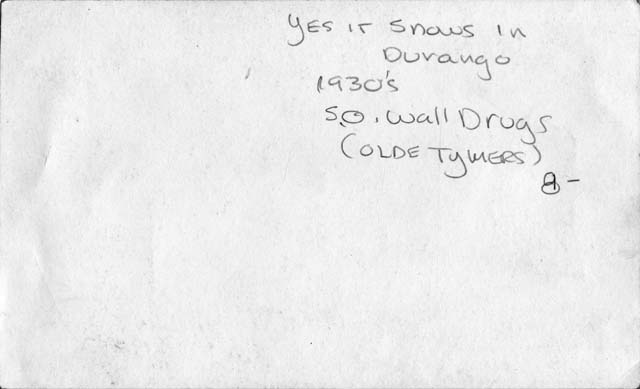 YES IT Snows In
Durango
1930's
S.O. Wall Drugs
(OLDE TYMERS)
8-